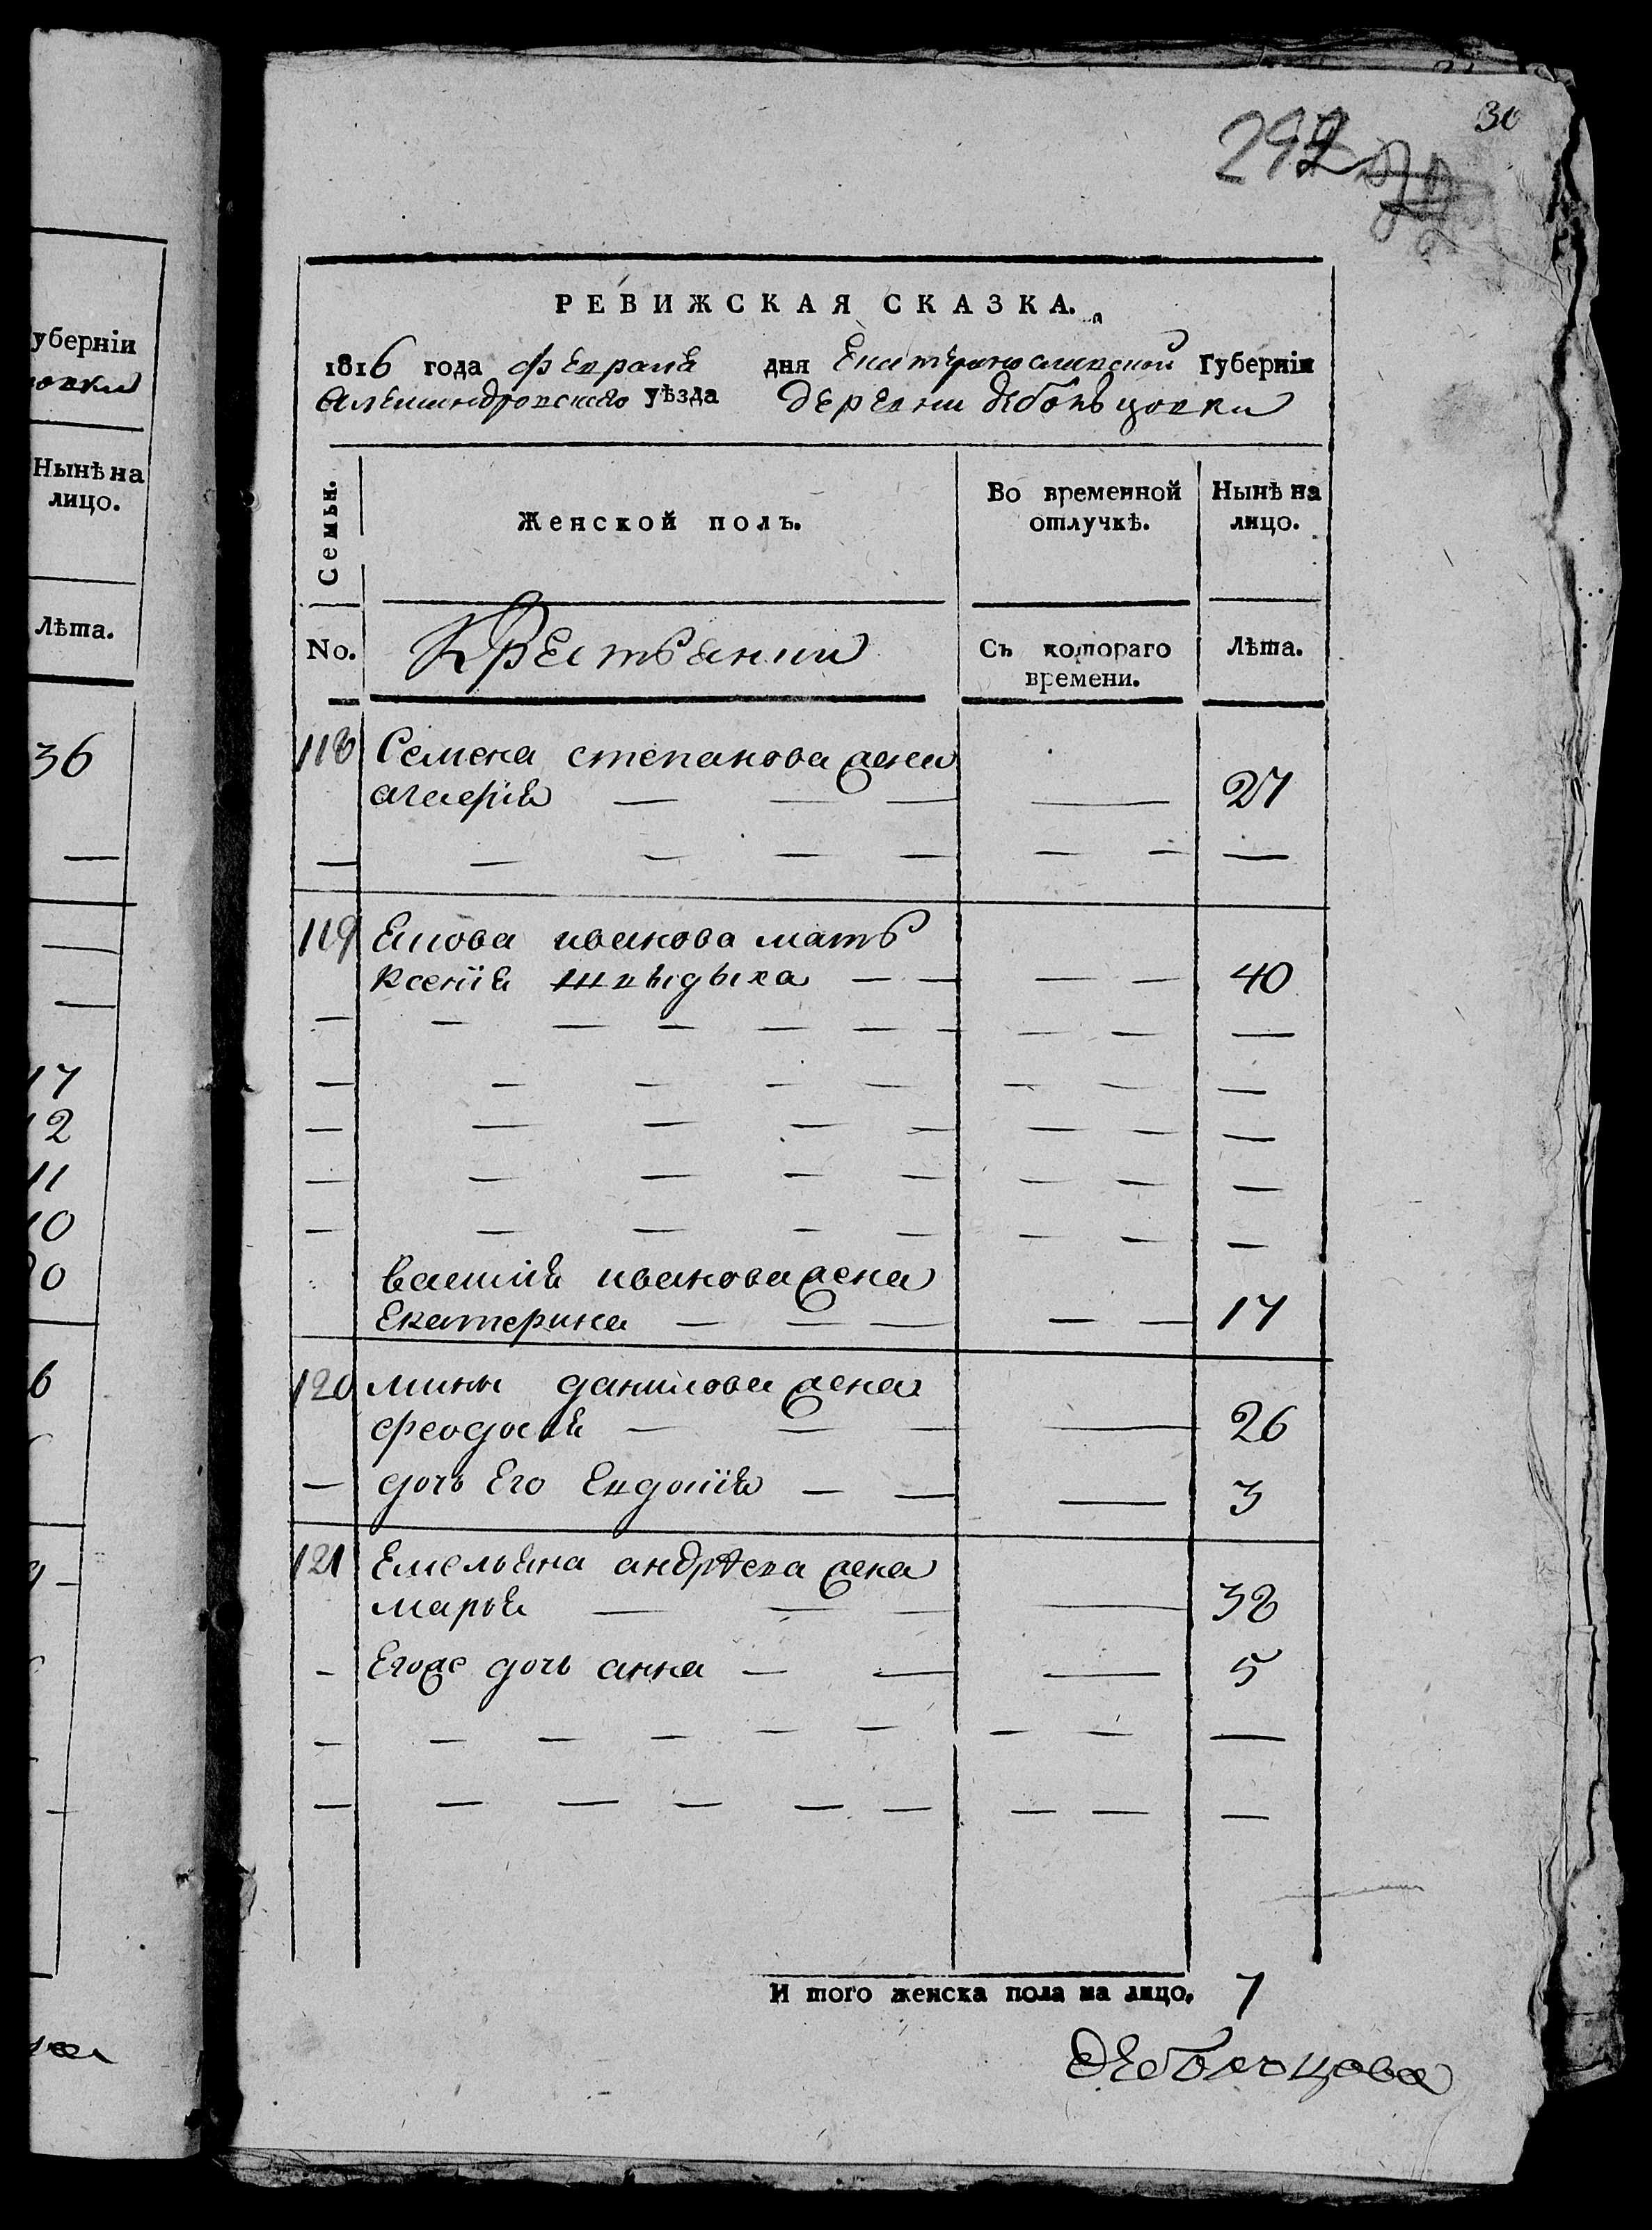 30
292
РЕВИЖСКАЯ СКАЗКА.
1816 года февраля дня Екатеринославской Губерніи
Александровскаго уѣзда деревни дебольцовки
Семьи.
Женской полъ.
Во временной отлучкѣ.
Нынѣ на лицо.
No.
Крестьянии
Съ котораго времени.
Лѣта.
118 Семена степанова жена
— — — — 27
— — — — — — — —
119 Якова иванова мать
Ксенія — — — — 40
— — — — — — — — — —
— — — — — — — —
— — — — — — — —
— — — — — — — —
— — — — — — — —
василія иванова жена
Екатерина — — — — — 17
120 мины данилова жена
феодосія — — — — 26
— дочь Его Евдокія — — — 3
121 Емельяна андрѣева жена
марья — — — — 38
— Егоже дочь анна — — — 5
— — — — — — — — —
— — — — — — — — —
И того женска пола на лицо. 7
Дебольцова
уберніи
овки
Нынѣ на
лицо.
Лѣта.
36
—
—
—
17
12
11
10
0
6
—
—